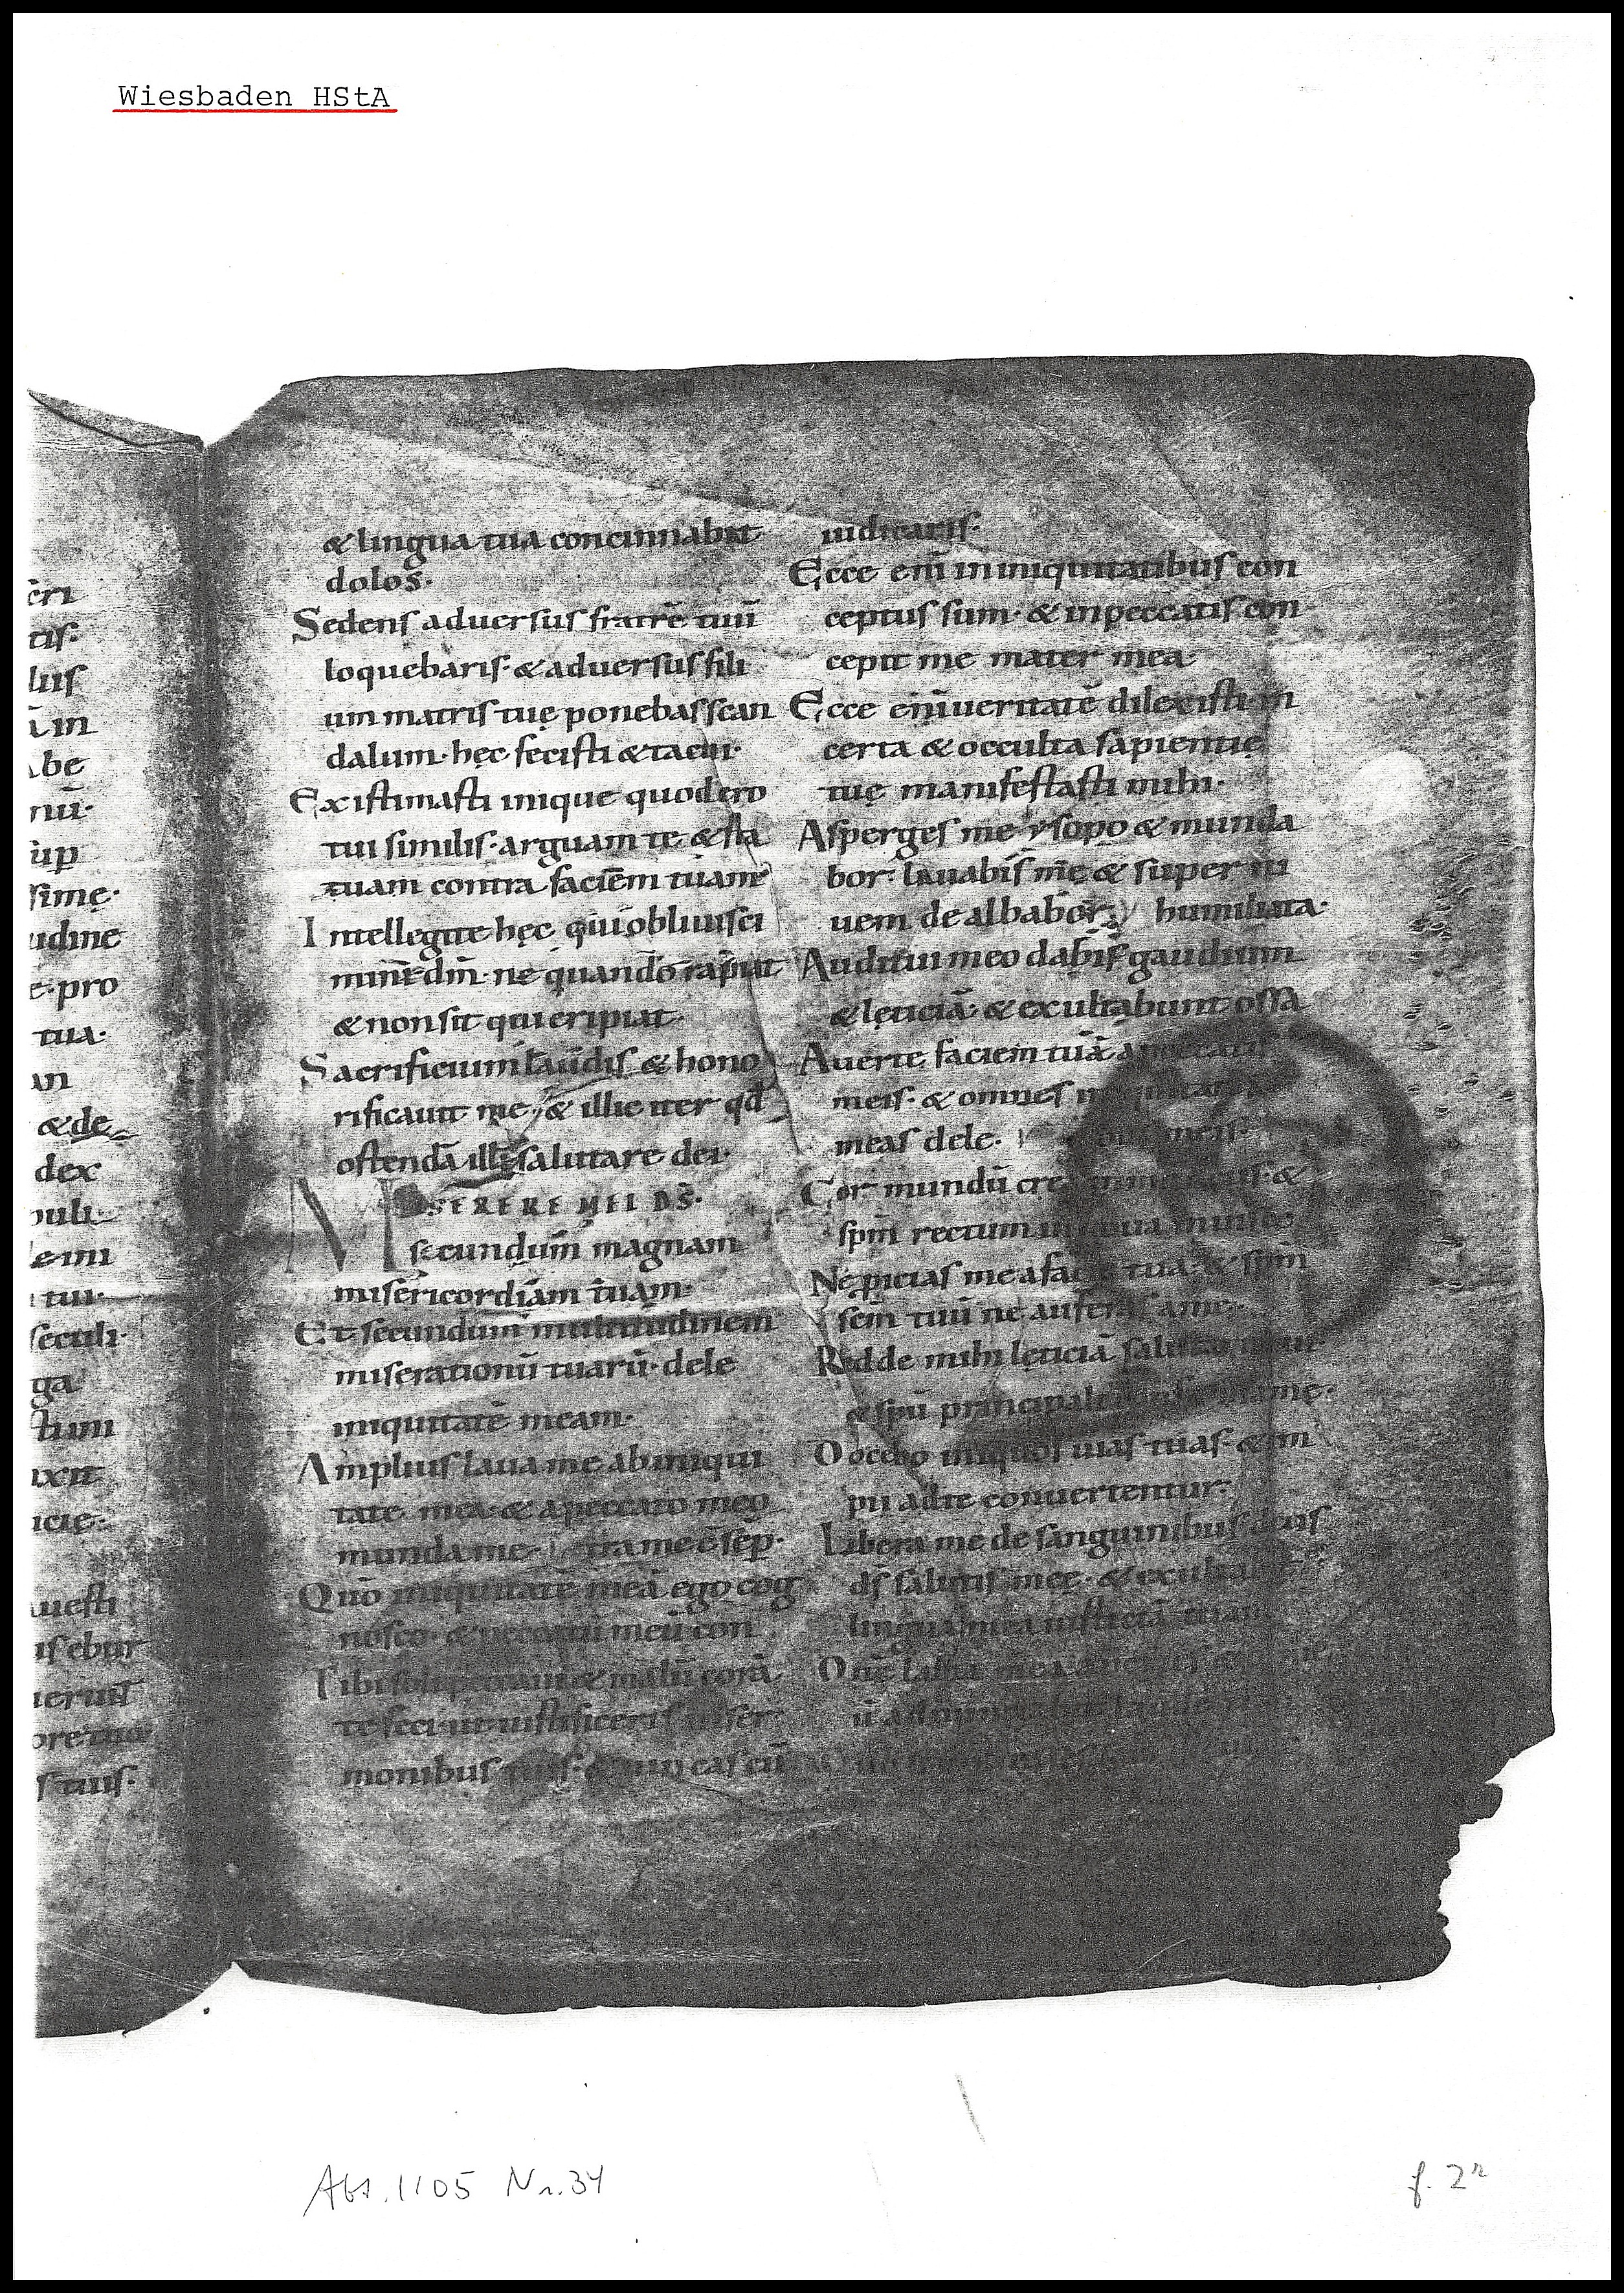 Wiesbaden HStA
ēri
tis·
luis
ā in
be
nū·
sup
sime·
udine
e·pro
tua·
an
& de
dex
puli·
e mi
tui·
seculi·
ga
stimi
uxit
icie·
uesti
isebur
uerunt
ore tuo
s tuis·
& lingua tua concinnabat
dolos·
Sedens aduersus fratrē tuū
loquebaris· & aduersus fili
um matris tuę ponebas scan
dalum· hęc fecisti & tacui·
Existimasti inique quod ero
tui similis· arguam te & sta
tuam contra faciem tuam
Intellegite hęc qui obliuisci
mini dm̄· ne quando rapiat
& non sit qui eripiat·
Sacrificium laudis & hono
rificauit me· & illic iter qđ
ostendā illi salutare dei·
MISERERE MEI DS̄·
secundum magnam
misericordiam tuam·
Et secundum multitudinem
miserationū tuarū· dele
iniquitatē meam·
Amplius laua me ab iniqui
tate mea· & a peccato meo
munda me· tra me ē sep̄·
Quō iniquitatē meā ego cog
nosco· & peccatū meū con
Tibi soli peccaui & malū corā
te feci ut iustificeris in ser
monibus tuis· & uincas cū
iudicaris·
Ecce enī in iniquitatibus con
ceptus sum· & in peccatis con
cepit me mater mea·
Ecce enī ueritatē dilexisti· in
certa & occulta sapientię
tuę manifestasti mihi·
Asperges me ysopo & munda
bor· lauabis me & super ni
uem dealbabor· humiliata·
Auditui meo dabis gaudium
& lęticiā· & exultabunt ossa
Auerte faciem tuā a peccatis
meis· & omnes
meas dele·
Cor mundū cre &
spm̄ rectum in
Ne ꝓicias me a fac tua· & spm̄
scm̄ tuū ne auferas a me·
Redde mihi lęticiā
& spū principali me·
Doceбo iniquos uias tuas· & im
pii ad te conuertentur·
Libera me de sanguinibus deus
ds̄ salutis meę· & exulta
lingua mea iusticiā tuam
Dn̄e labia mea
Abt. 1105 Nr. 34
f. 2r